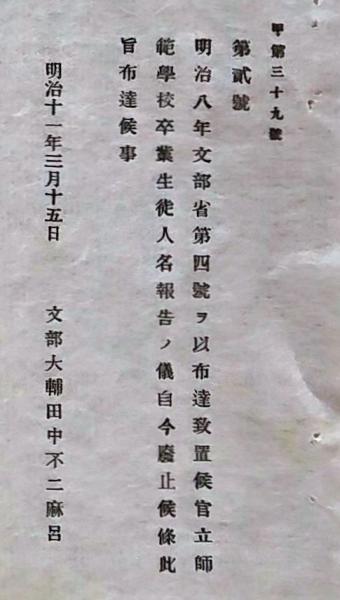 甲第三十九號
第貳號
明治八年文部省第四號ヲ以布達致置候官立師
範學校卒業生徒人名報告ノ儀自今廢止候條此
旨布達候事
明治十一年三月十五日　文部大輔田中不二麻呂